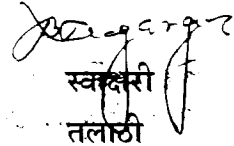 स्वाक्षरी
तलाठी